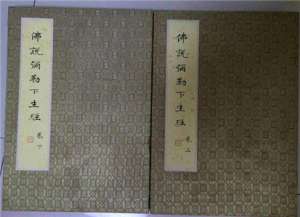 佛說彌勒下生經
卷上
佛說彌勒下生經
卷下